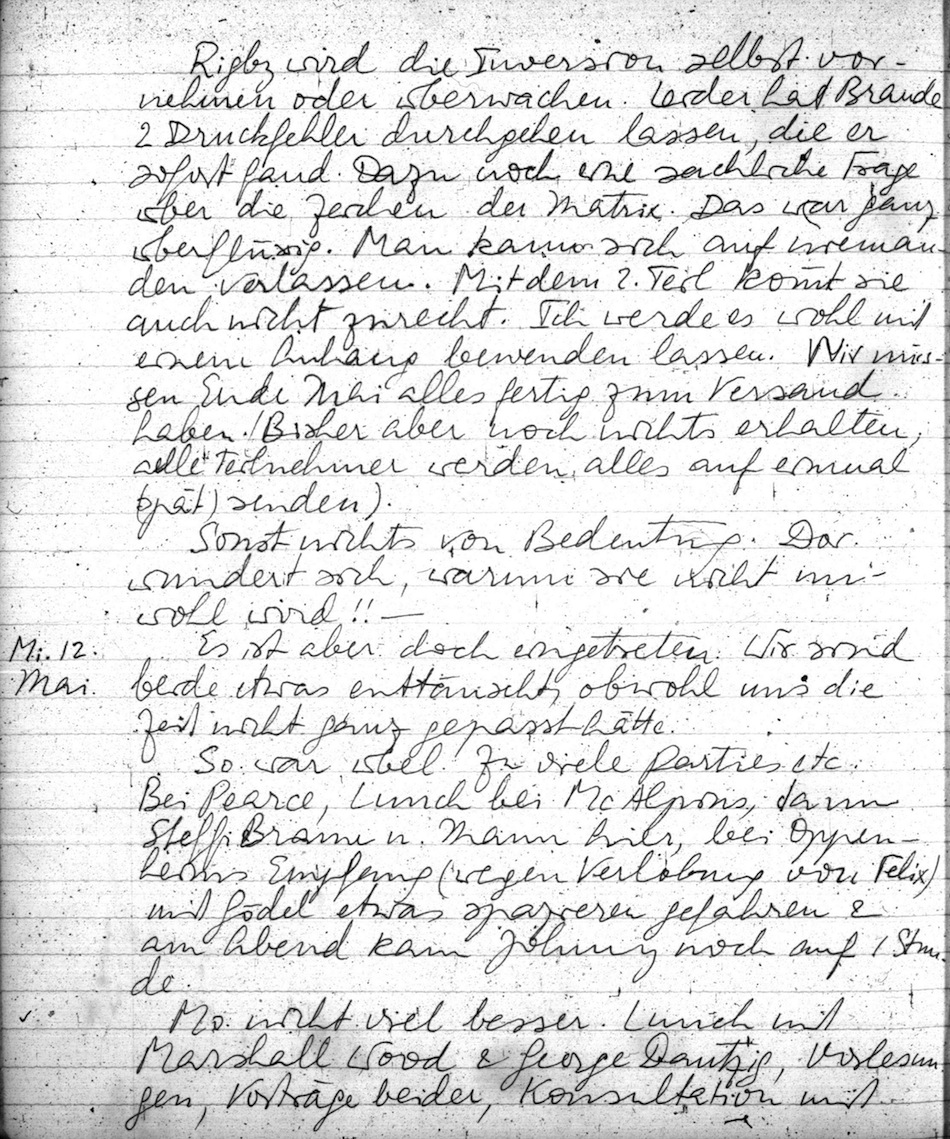 Rigby wird die Inversion selbst vor-
nehmen oder überwachen. Leider hat Braude
2 Druckfehler durchgehen lassen, die er
sofort fand. Dazu noch eine sachliche Frage
über die Zeichen der Matrix. Das war ganz
überflüssig. Man kann sich auf nieman
den verlassen. Mit dem 2. Teil kom̄t sie
auch nicht zurecht. Ich werde es wohl mit
einem Anhang bewenden lassen. Wir müs-
sen Ende Mai alles fertig zum Versand
haben. (Bisher aber noch nichts erhalten,
alle Teilnehmer werden alles auf einmal
(spät) senden).
Sonst nichts von Bedeutung. Dor.
wundert sich, warum sie nicht un-
wohl wird!! —
Mi. 12. Es ist aber doch eingetreten. Wir sind
Mai. beide etwas enttäuscht, obwohl uns die
Zeit nicht ganz gepasst hätte.
So. war übel. Zu viele parties etc.
Bei Pearce, Lunch bei McAlpins, dann
Steffi Braun u. Mann hier, bei Oppen-
heims Empfang (wegen Verlobung von Felix)
mit Gödel etwas spazieren gefahren &
am Abend kam Johnny noch auf 1 Stun-
de.
Mo. nicht viel besser. Lunch mit
Marshall Wood & George Dantzig, Vorlesun
gen, Vorträge beider, Konsultation mit